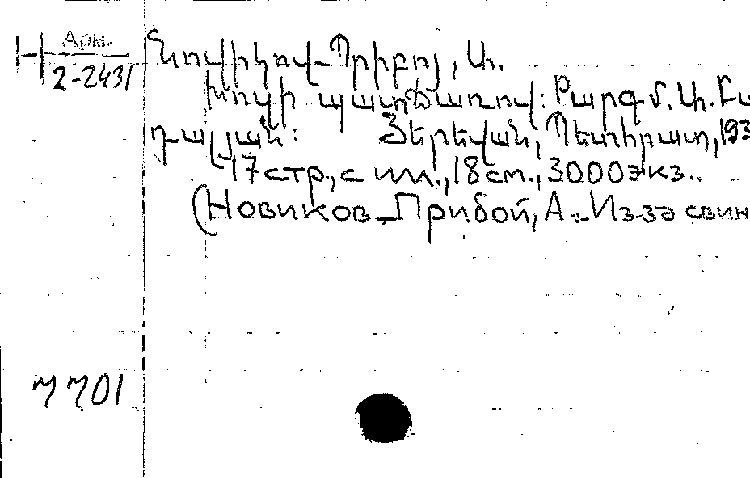 Н Арм.
2-2431
Նովիկով-Պրիբոյ, Ա.
Խոզի պատճառով: Թարգմ. Ա.
դալյան: Յերեվան, Պետհրատ, 193
17 стр., с ил., 18 см., 3000 экз.
(Новиков-Прибой, А. Из-за свин
7701